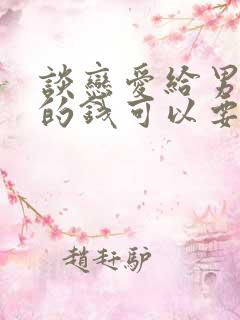 談戀愛給男
的錢可以要
趙趕驢